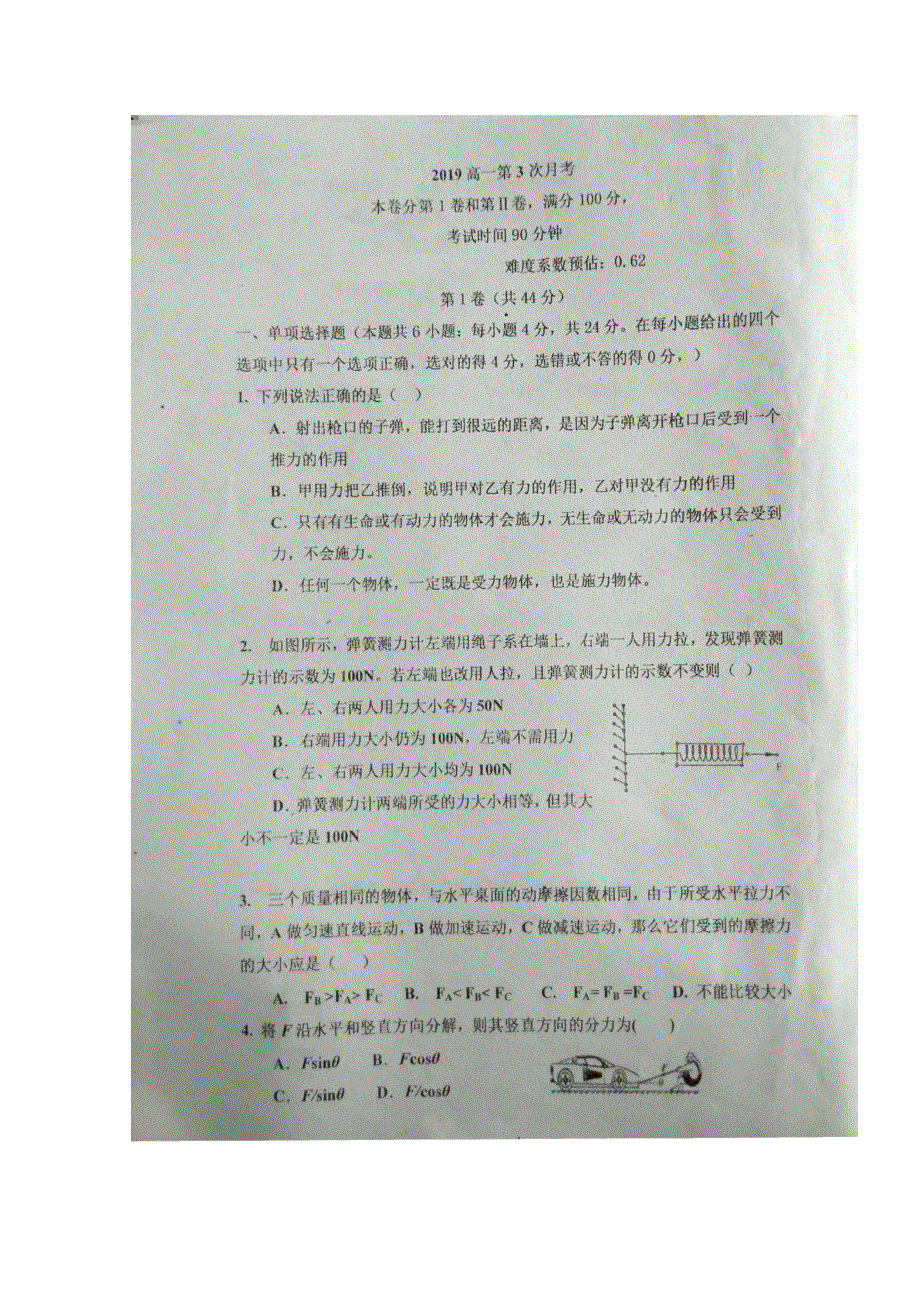 2019 高一第 3 次月考
本卷分第 1 卷和第Ⅱ卷，满分 100 分，
考试时间 90 分钟
难度系数预估：0.62
第 1 卷（共 44 分）
一、单项选择题（本题共 6 小题；每小题 4 分，共 24 分。在每小题给出的四个
选项中只有一个选项正确，选对的得 4 分，选错或不答的得 0 分，）
1. 下列说法正确的是（ ）
A．射出枪口的子弹，能打到很远的距离，是因为子弹离开枪口后受到一个
推力的作用
B．甲用力把乙推倒，说明甲对乙有力的作用，乙对甲没有力的作用
C．只有有生命或有动力的物体才会施力，无生命或无动力的物体只会受到
力，不会施力。
D．任何一个物体，一定既是受力物体，也是施力物体。
2. 如图所示，弹簧测力计左端用绳子系在墙上，右端一人用力拉，发现弹簧测
力计的示数为 100N。若左端也改用人拉，且弹簧测力计的示数不变则（ ）
A．左、右两人用力大小各为 50N
B．右端用力大小仍为 100N，左端不需用力
C．左、右两人用力大小均为 100N
F
D．弹簧测力计两端所受的力大小相等，但其大
小不一定是 100N
3. 三个质量相同的物体，与水平桌面的动摩擦因数相同，由于所受水平拉力不
同，A 做匀速直线运动，B 做加速运动，C 做减速运动，那么它们受到的摩擦力
的大小应是（ ）
A. FB >FA> FC B. FA< FB< FC C. FA= FB =FC D. 不能比较大小
4. 将 F 沿水平和竖直方向分解，则其竖直方向的分力为( )
A．Fsinθ B．Fcosθ
F
θ
C．F/sinθ D．F/cosθ